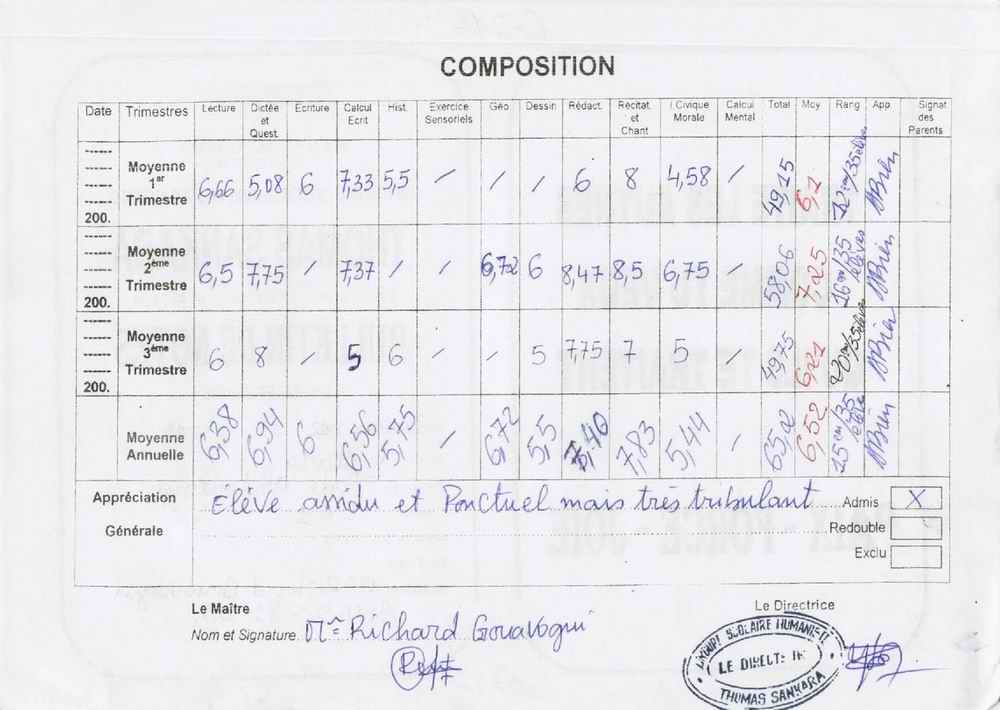 COMPOSITION
Date Trimestres Lecture Dictée et Quest. Ecriture Calcul Ecrit Hist. Exercice Sensoriels Géo Dessin Rédact. Récitat et Chant I Civique Morale Calcul Mental Total Moy Rang App. Signat des Parents
200. Moyenne 1er Trimestre 6,66 5,08 6 7,33 5,5 / / / 6 8 4,58 / 49,15 6,1 12em/35élèves ABien
200. Moyenne 2ème Trimestre 6,5 7,75 / 7,37 / / 6,72 6 8,47 8,5 6,75 / 58,06 7,25 16em/35 élèves ABien
200. Moyenne 3ème Trimestre 6 8 / 5 6 / / 5 7,75 7 5 / 49,75 6,21 20em/35élèves ABien
Moyenne Annuelle 6,38 6,94 6 6,56 5,75 / 6,72 5,5 7,40 7,83 5,44 / 65,02 6,52 15em/35 ABien
Appréciation Générale Elève assidu et Ponctuel mais très tribulant Admis X
Redouble
Exclu
Le Maître
Nom et Signature. Mr Richard Gouavogui
Le Directrice
SCOLAIRE HUMANISTE
LE DIRECTE
THOMAS SANKARA